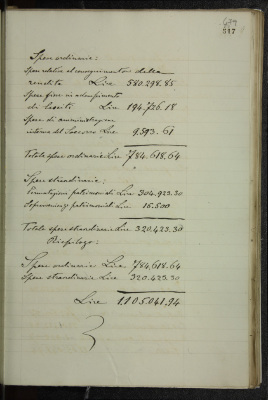 629
317
Spese ordinarie:
Spese relative al conseguimento della
rendita Lire 580.298.85
Spese fisse in adempimento
di lasciti Lire 194.726.18
Spese di amministrazione
interna del Soccorso Lire 9.593.61
Totale spese ordinarie Lire 784.618.64
Spese straordinarie:
patrimoniali Lire 304.923.30
patrimoniali Lire 15.500
Totale spese straordinarie Lire 320.423.30
Riepilogo:
Spese ordinarie Lire 784.618.64
Spese straordinarie Lire 320.423.30
Lire 1.105.041.94